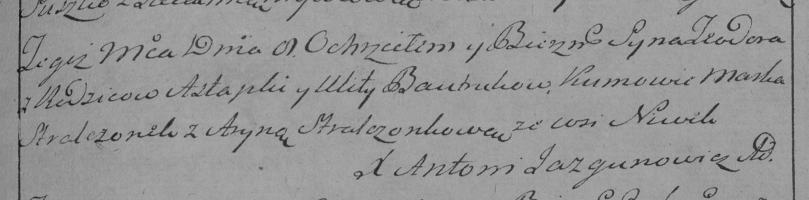 Tegiż Mca Dnia 8. Ochrzciłem y Bierzm Syna Teodora
z Rodzicow Astapki y Ulity Bautrukow, Kumowie Maska
Stralczonek z Aryną Stralczonkową ze wsi Niwek
X Antoni Jazgunowicz AD.